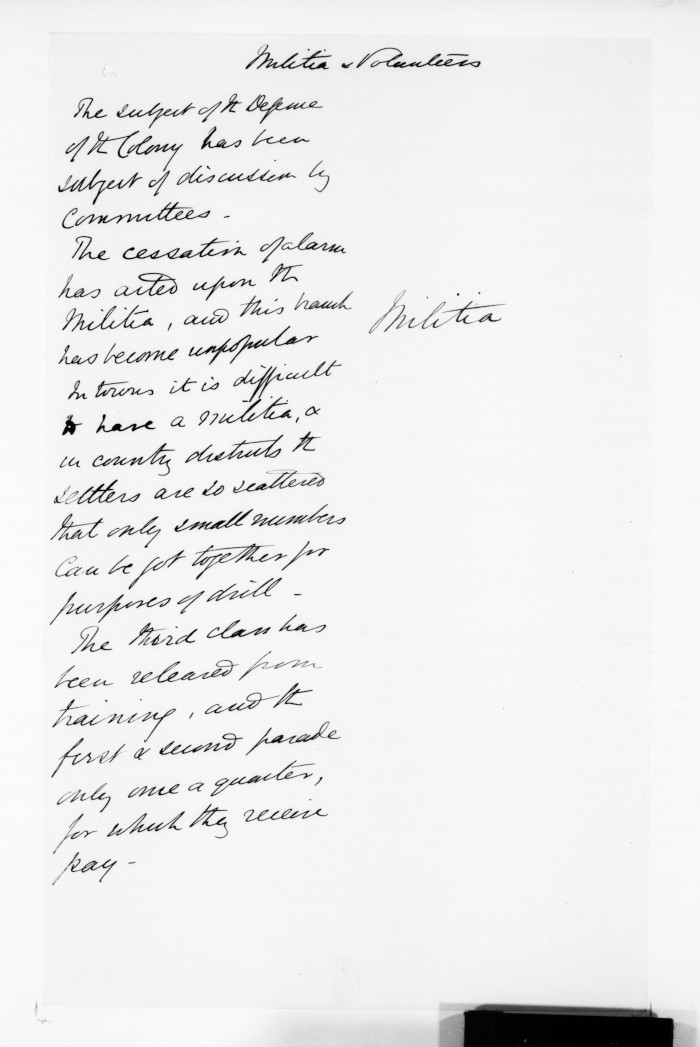 Militia & Volunteers
The subject of the Defense
of the Colony has been
subject of discussion by
Committees -
The cessation of alarm
has acted upon the
Militia, and this branch
has become unpopular
In towns it is difficult
to have a militia, &
in country districts the
settlers are so scattered
that only small numbers
can be got together for
purposes of drill -
The third class has
been released from
training, and the
first & second parade
only once a quarter,
for which they receive
pay -
Militia